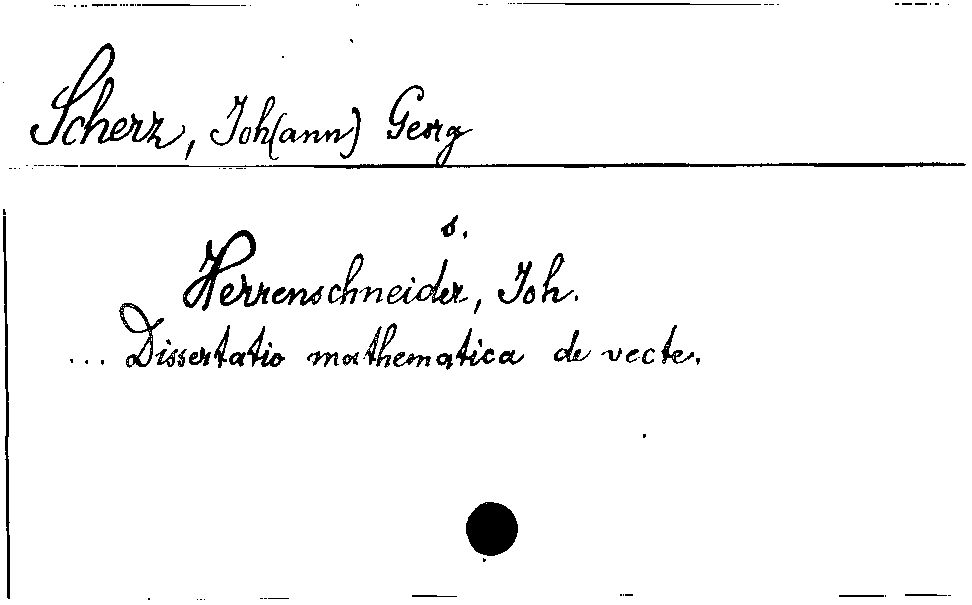 Scherz, Joh(ann) Georg
s.
Herrenschneider, Joh.
... Dissertatio mathematica de vecte.